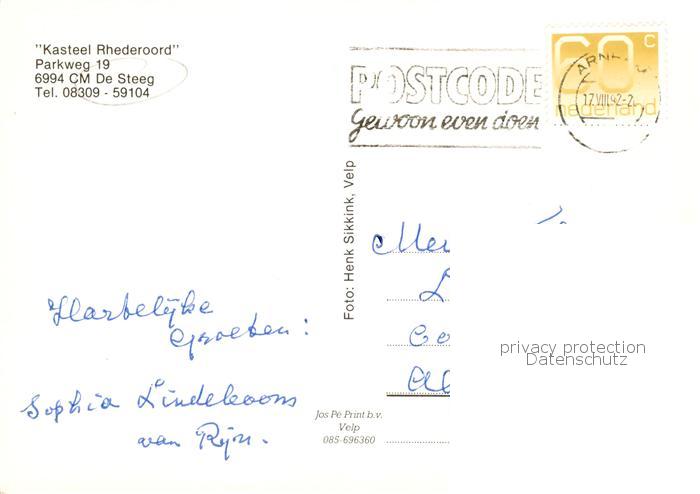 "Kasteel Rhederoord"
Parkweg 19
6994 CM De Steeg
Tel. 08309 - 59104
POSTCODE
Gewoon even doen
60 c
nederland
17.VIII.92-2
Foto: Henk Sikkink, Velp
Hartelijke
Groeten:
Sophia Lindeboom
van Rijn.
Jos Pé Print b.v.
Velp
085-696360
privacy protection
Datenschutz